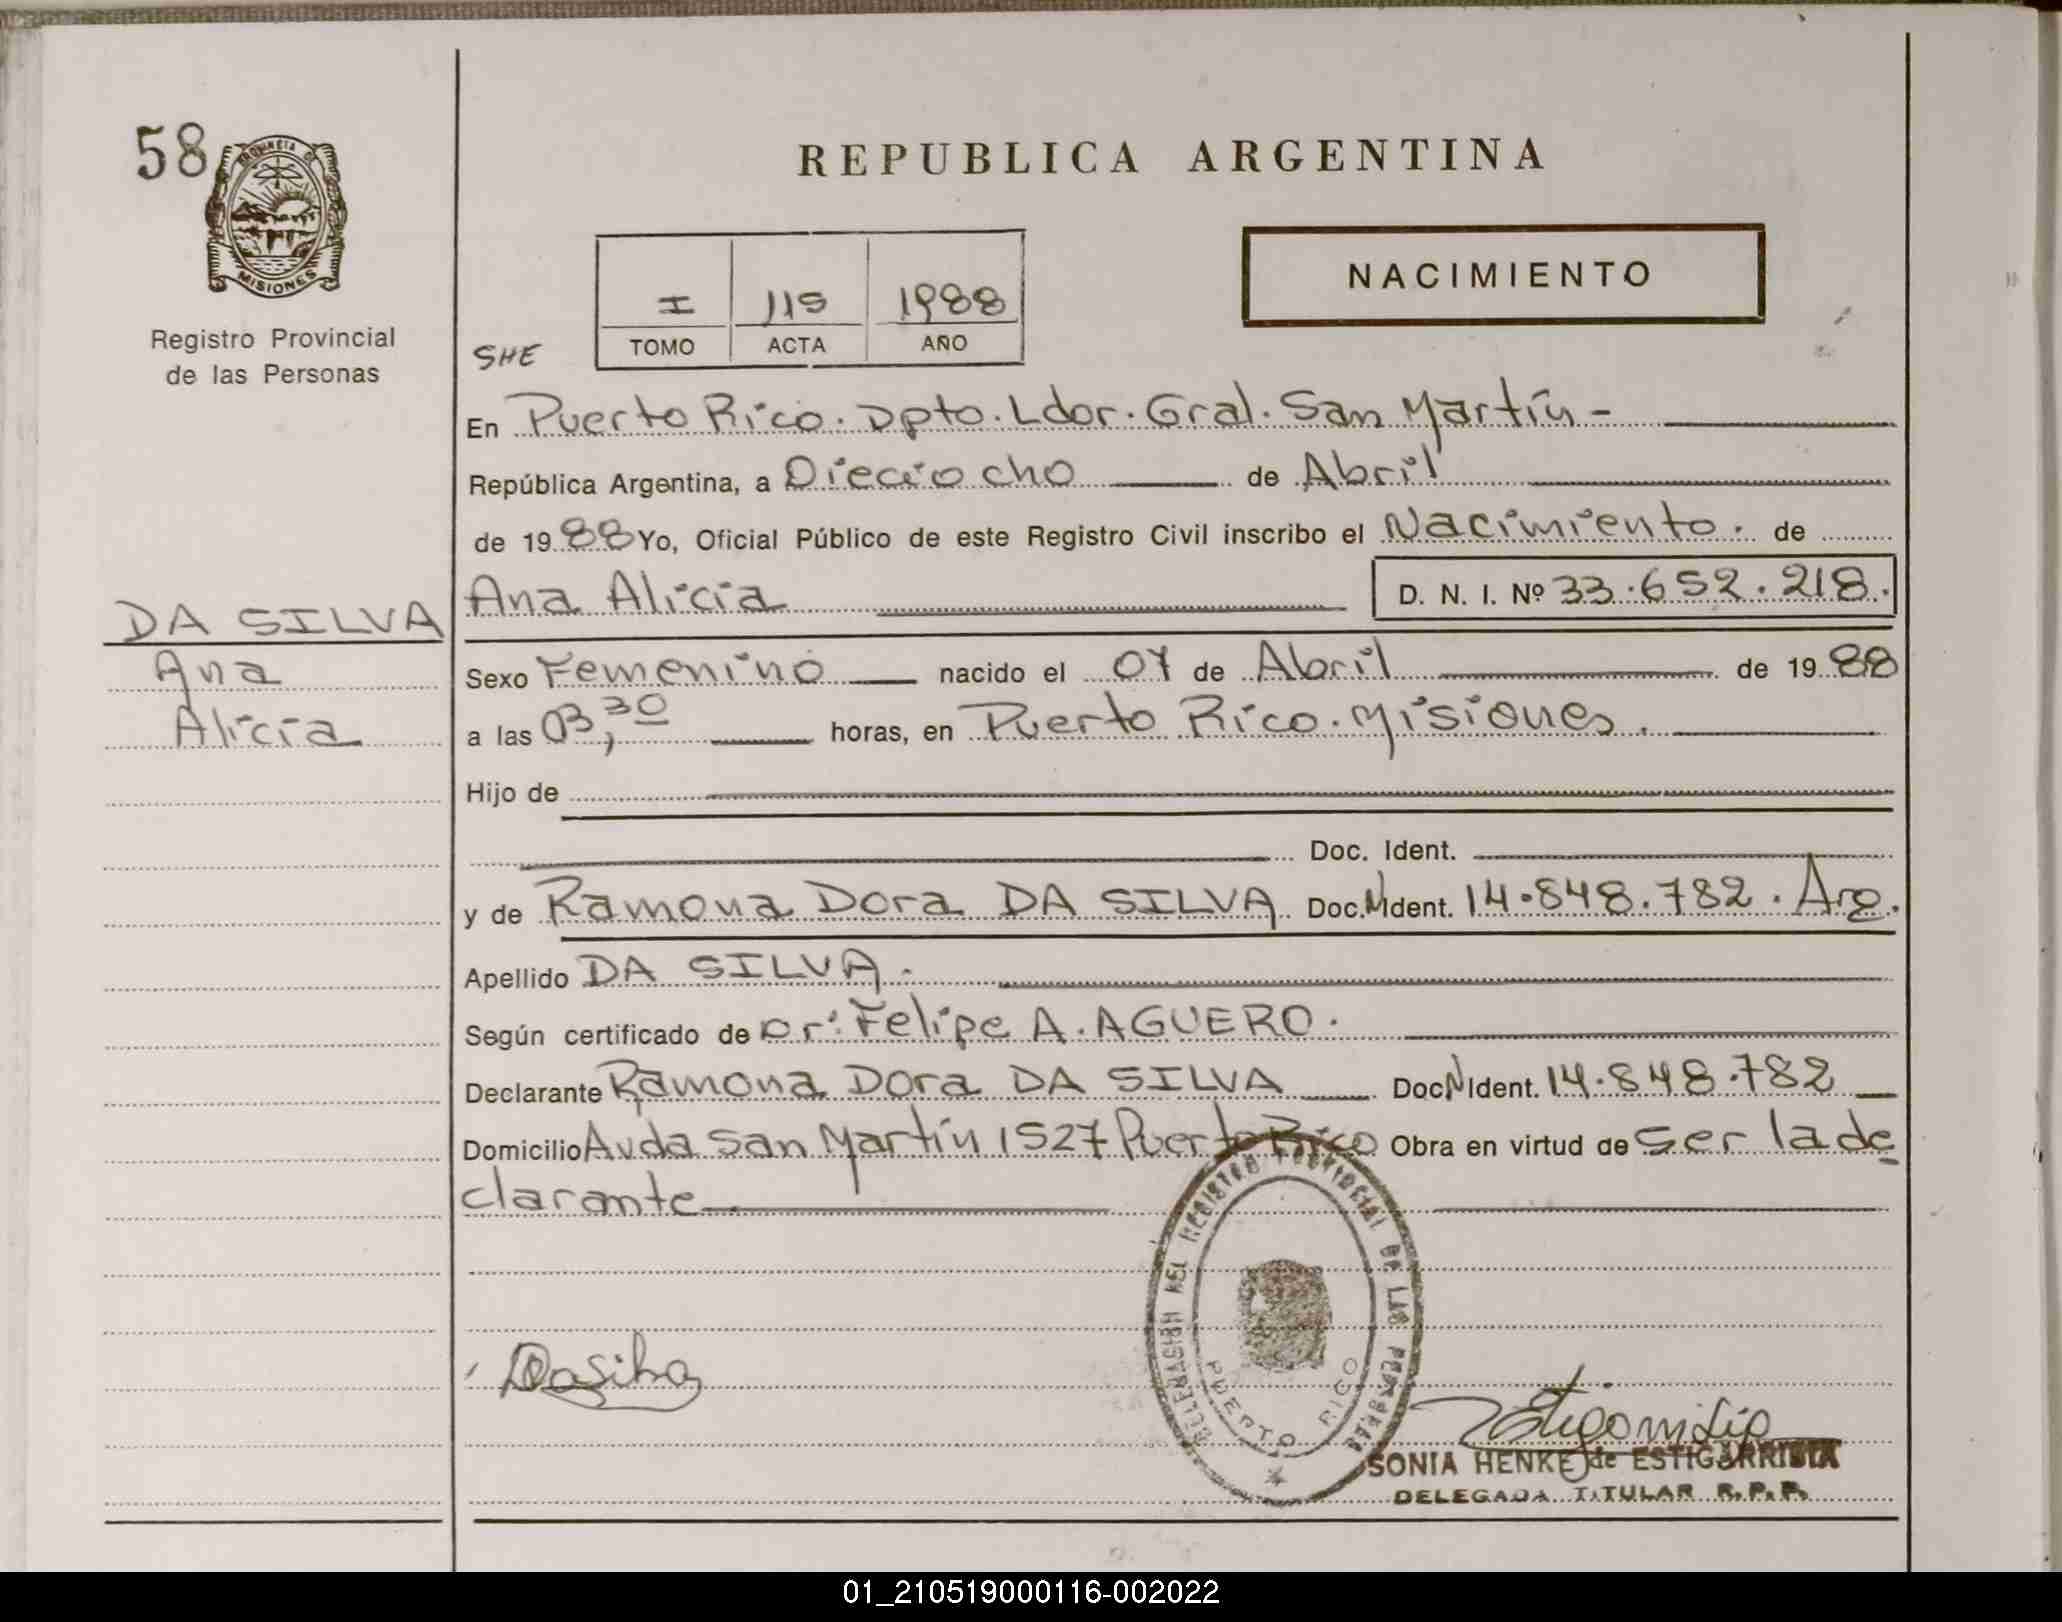 58
PROVINCIA DE
MISIONES
Registro Provincial
de las Personas
REPUBLICA ARGENTINA
NACIMIENTO
I 115 1988
TOMO ACTA AÑO
SHE
En Puerto Rico. Dpto. Ldor. Gral. San Martín -
República Argentina, a Dieciocho de Abril
de 1988 Yo, Oficial Público de este Registro Civil inscribo el Nacimiento. de
Ana Alicia D. N. I. Nº 33.652.218.
DA SILVA
Ana
Alicia
Sexo Femenino nacido el 07 de Abril de 1988
a las 03,30 horas, en Puerto Rico. Misiones.
Hijo de
Doc. Ident.
y de Ramona Dora DA SILVA Doc.NIdent. 14.848.782. Arg.
Apellido DA SILVA.
Según certificado de Dr: Felipe A. AGUERO.
Declarante Ramona Dora DA SILVA DocNIdent. 14.848.782
Domicilio Avda San Martín 1527 Puerto Rico Obra en virtud de ser la de
clarante
DELEGACION DEL REGISTRO PROVINCIAL DE LAS PERSONAS
PUERTO RICO
DaSilva
SONIA HENKE de ESTIGARRIBIA
DELEGADA TITULAR R.P.P.
01_210519000116-002022